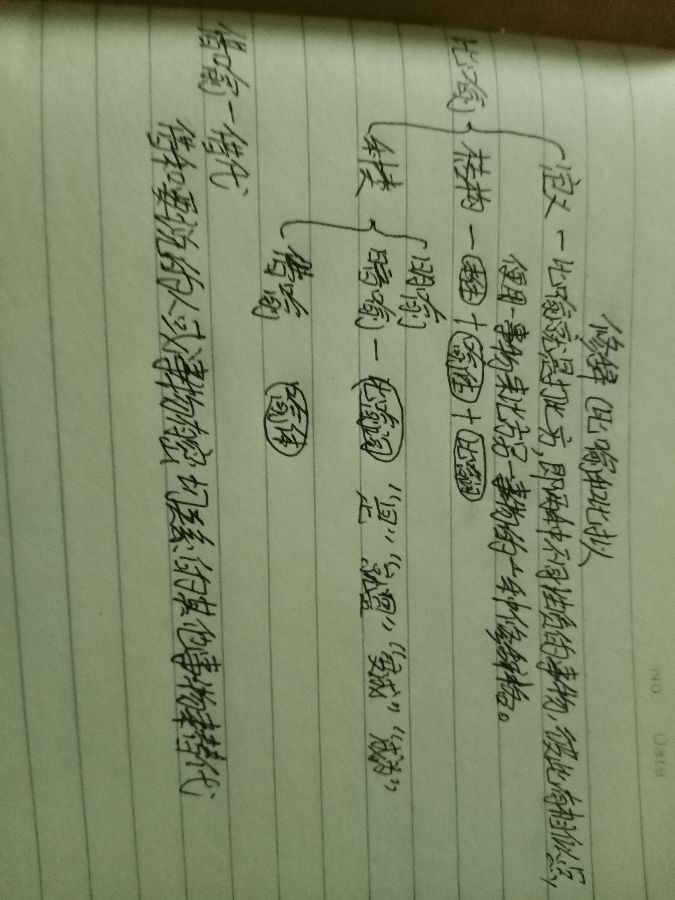 修辞 比喻和比拟
定义—比喻就是打比方,即两种不同性质的事物,彼此有相似点,
使用一事物来比方另一事物的一种修辞格。
比喻 结构—本体+喻体+比喻词
种类 明喻
暗喻—比喻词 "是" "就是" "变成" "成为"
借喻 喻体
借喻—借代
借和事物的人或事物密切关系的其他事物来替代
NO.
Date